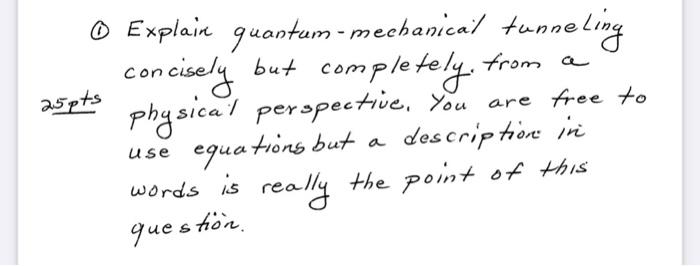 ① Explain quantum-mechanical tunneling
concisely but completely, from a
25pts physical perspective. You are free to
use equations but a description in
words is really the point of this
question.